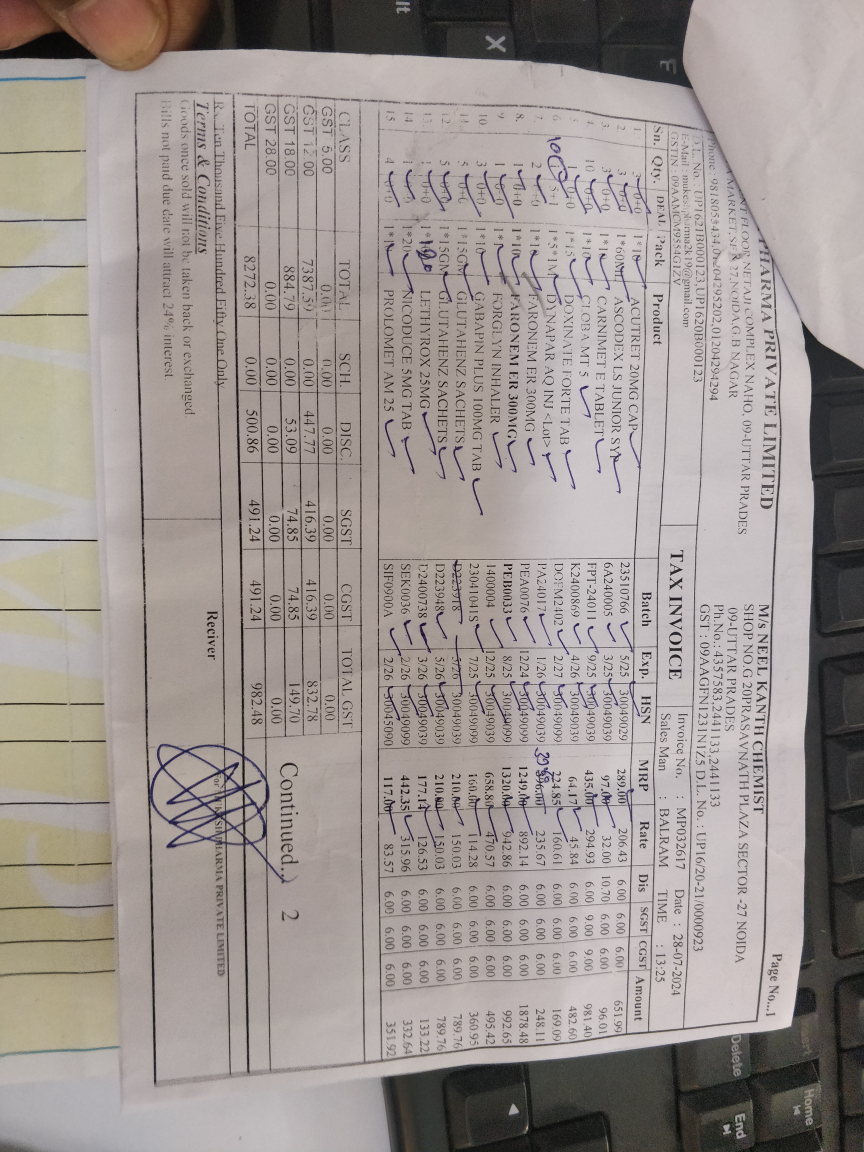 PHARMA PRIVATE LIMITED
FLOOR, NETAJI COMPLEX NAHO, 09-UTTAR PRADES
MARKET,SEX 37,NOIDA,G.B NAGAR
Phone : 9818055434, 01204294294
D.L. No. : UP1621B000123,UP1620B000123
GSTIN : 09AAMCM9554G1ZV
Page No...1
M/s NEEL KANTH CHEMIST
SHOP NO,G 20PRASAVNATH PLAZA SECTOR -27 NOIDA
09-UTTAR PRADES
Ph.No.: 4357583,2441133,2441133
GST : 09AAGFN1231N1Z5 D.L. No. : UP16/20-21/0000923
TAX INVOICE
Invoice No. : MP032617 Date : 28-07-2024
Sales Man : BALRAM TIME : 13:25
Sn. Qty. DEAL Pack Product Batch Exp. HSN MRP Rate Dis SGST CGST Amount
1. 3 0+0 1*10 ACUTRET 20MG CAP 23510766 5/25 30049029 289.00 206.43 6.00 6.00 6.00 651.99
2. 3 0+0 1*60M ASCODEX LS JUNIOR SY 6A240005 3/25 30049039 97.00 32.00 10.70 6.00 6.00 96.01
3. 3 0+0 CARNIMET E TABLET FPT-24011 9/25 30049039 435.00 294.93 6.00 9.00 9.00 981.40
4. 10 0+0 1*10 CLOBA MT 5 K2400869 4/26 30049039 64.17 45.84 6.00 6.00 6.00 482.60
5. 1 0+0 1*15 DOXINATE FORTE TAB DOFM2402 2/27 30049099 224.85 160.61 6.00 6.00 6.00 169.09
6. 5+1 1*5*1M DYNAPAR AQ INJ <Lot> PA24017 1/26 30049039 235.67 6.00 6.00 6.00 248.11
7. 2 0+0 FARONEM ER 300MG PEA0076 12/24 30049099 1249.00 892.14 6.00 6.00 6.00 1878.48
8. 1 0+0 1*10 FARONEM ER 300MG PEB0033 8/25 30049099 1320.00 942.86 6.00 6.00 6.00 992.65
9. 1 0+0 FORGLYN INHALER 1400004 12/25 30049039 658.80 470.57 6.00 6.00 6.00 495.42
10. 3 0+0 1*10 GABAPIN PLUS 100MG TAB 23041041S 7/25 30049099 160.00 114.28 6.00 6.00 6.00 360.95
11. 5 0+0 1*15GM GLUTAHENZ SACHETS D223918 5/26 30049039 210.00 150.03 6.00 6.00 6.00 789.76
12. 5 0+0 1*15GM GLUTAHENZ SACHETS D223948 5/26 30049039 210.00 150.03 6.00 6.00 6.00 789.76
13. 1 0+0 LETHYROX 25MG D2400738 3/26 30049039 177.14 126.53 6.00 6.00 6.00 133.22
14. 1 0+0 1*20 NICODUCE 5MG TAB SEK0036 2/26 30049099 442.35 315.96 6.00 6.00 6.00 332.64
15. 4 0+0 PROLOMET AM 25 SIF0900A 2/26 30045090 117.00 83.57 6.00 6.00 6.00 351.92
CLASS TOTAL SCH. DISC. SGST CGST TOTAL GST
GST 5.00 0.00 0.00 0.00 0.00 0.00 0.00
GST 12.00 7387.59 0.00 447.77 416.39 416.39 832.78
GST 18.00 884.79 0.00 53.09 74.85 74.85 149.70
GST 28.00 0.00 0.00 0.00 0.00 0.00 0.00
TOTAL 8272.38 0.00 500.86 491.24 491.24 982.48
Continued.. 2
Rs. Ten Thousand Five Hundred Fifty One Only
Terms & Conditions
Goods once sold will not be taken back or exchanged.
Bills not paid due date will attract 24% interest.
Reciver
PHARMA PRIVATE LIMITED
X
F
Delete
End
Home